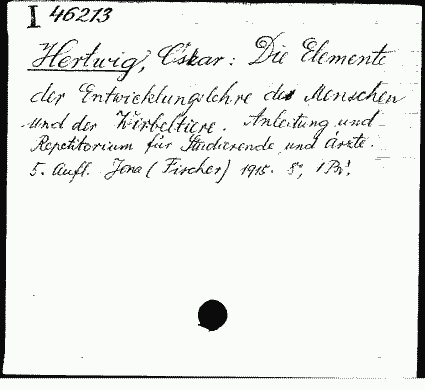 I 46213
Hertwig, Oskar: Die Elemente
der Entwicklungslehre des Menschen
und der Wirbeltiere. Anleitung und
Repetitorium für Studierende und Ärzte.
5. Aufl. Jena (Fischer) 1915. 8°, 1 Bd.